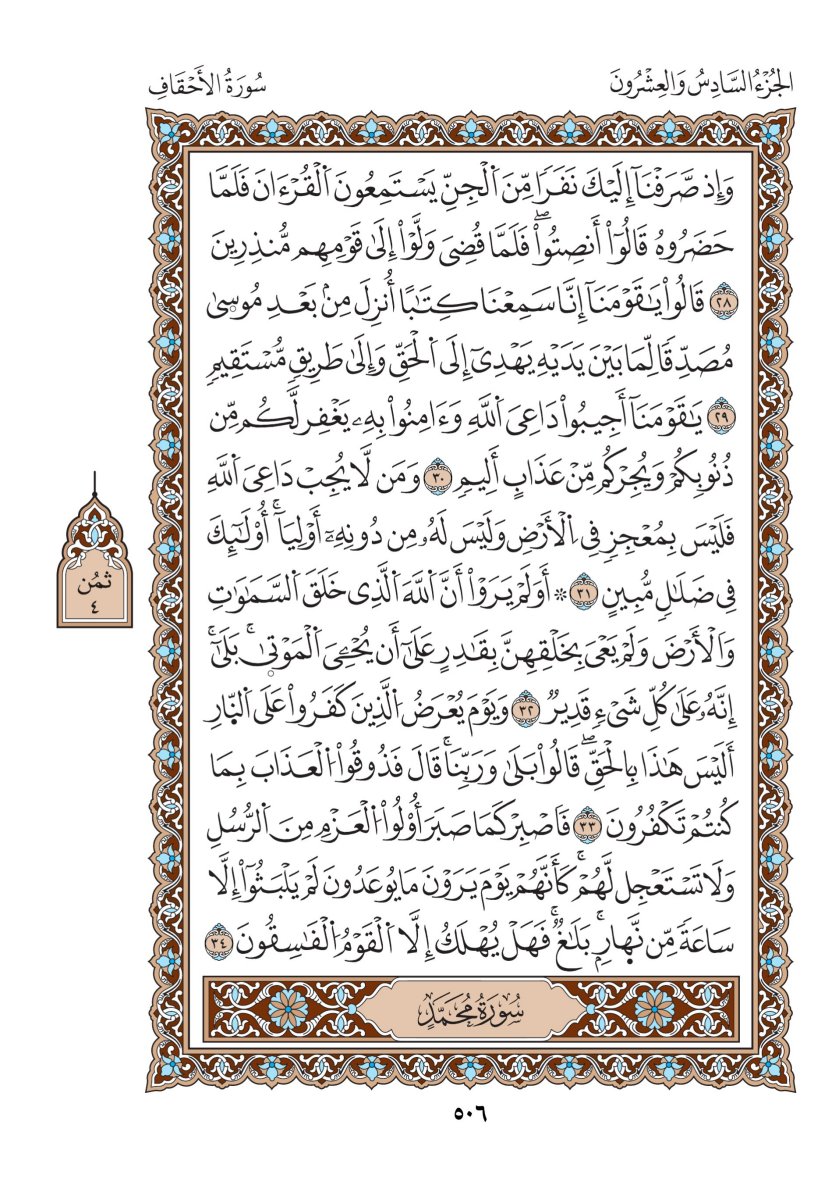 الجُزْءُ السَّادِسُ وَالعِشْرُونَ
سُورَةُ الأَحْقَافِ
وَإِذ صَّرَفْنَآ إِلَيْكَ نَفَرٗا مِّنَ اَ۬لْجِنِّ يَسْتَمِعُونَ اَ۬لْقُرْءَانَ فَلَمَّا
حَضَرُوهُ قَالُوٓاْ أَنصِتُواْۖ فَلَمَّا قُضِيَ وَلَّوْاْ إِلَىٰ قَوْمِهِم مُّنذِرِينَ
٢٨ قَالُواْ يَٰقَوْمَنَآ إِنَّا سَمِعْنَا كِتَٰبًا أُنزِلَ مِنۢ بَعْدِ مُوسۭىٰ
مُصَدِّقٗا لِّمَا بَيْنَ يَدَيْهِ يَهْدِيٓ إِلَى اَ۬لْحَقِّ وَإِلَىٰ طَرِيقٖ مُّسْتَقِيمٖ
٢٩ يَٰقَوْمَنَآ أَجِيبُواْ دَاعِيَ اَ۬للَّهِ وَءَامِنُواْ بِهِۦ يَغْفِر لَّكُم مِّن
ذُنُوبِكُمْ وَيُجِرْكُم مِّنْ عَذَابٍ أَلِيمٖ ٣٠ وَمَن لَّا يُجِبْ دَاعِيَ اَ۬للَّهِ
فَلَيْسَ بِمُعْجِزٖ فِي اِ۬لْأَرْضِ وَلَيْسَ لَهُۥ مِن دُونِهِۦٓ أَوْلِيَآ۬ۚ أُوْلَٰٓئِكَ
فِي ضَلَٰلٖ مُّبِينٍ ٣١ ۞ أَوَلَمْ يَرَوْاْ أَنَّ اَ۬للَّهَ اَ۬لَّذِي خَلَقَ اَ۬لسَّمَٰوَٰتِ
وَالْأَرْضَ وَلَمْ يَعْيَ بِخَلْقِهِنَّ بِقَٰدِرٍ عَلَىٰٓ أَن يُحْـِۧيَ اَ۬لْمَوْتۭىٰۚ بَلَىٰٓۚ
إِنَّهُۥ عَلَىٰ كُلِّ شَيْءٖ قَدِيرٞ ٣٢ وَيَوْمَ يُعْرَضُ اُ۬لَّذِينَ كَفَرُواْ عَلَى اَ۬لنّ۪ارِ
أَلَيْسَ هَٰذَا بِالْحَقِّۖ قَالُواْ بَلَىٰ وَرَبِّنَاۚ قَالَ فَذُوقُواْ اُ۬لْعَذَابَ بِمَا
كُنتُمْ تَكْفُرُونَ ٣٣ فَاصْبِرْ كَمَا صَبَرَ أُوْلُواْ اُ۬لْعَزْمِ مِنَ اَ۬لرُّسُلِ
وَلَا تَسْتَعْجِل لَّهُمْۚ كَأَنَّهُمْ يَوْمَ يَرَوْنَ مَا يُوعَدُونَ لَمْ يَلْبَثُوٓاْ إِلَّا
سَاعَةٗ مِّن نَّه۪ارِۢۚ بَلَٰغٞۚ فَهَلْ يُهْلَكُ إِلَّا اَ۬لْقَوْمُ اُ۬لْفَٰسِقُونَ ٣٤
سُورَةُ مُحَمَّدٍ
ثمُن
٤
٥٠٦